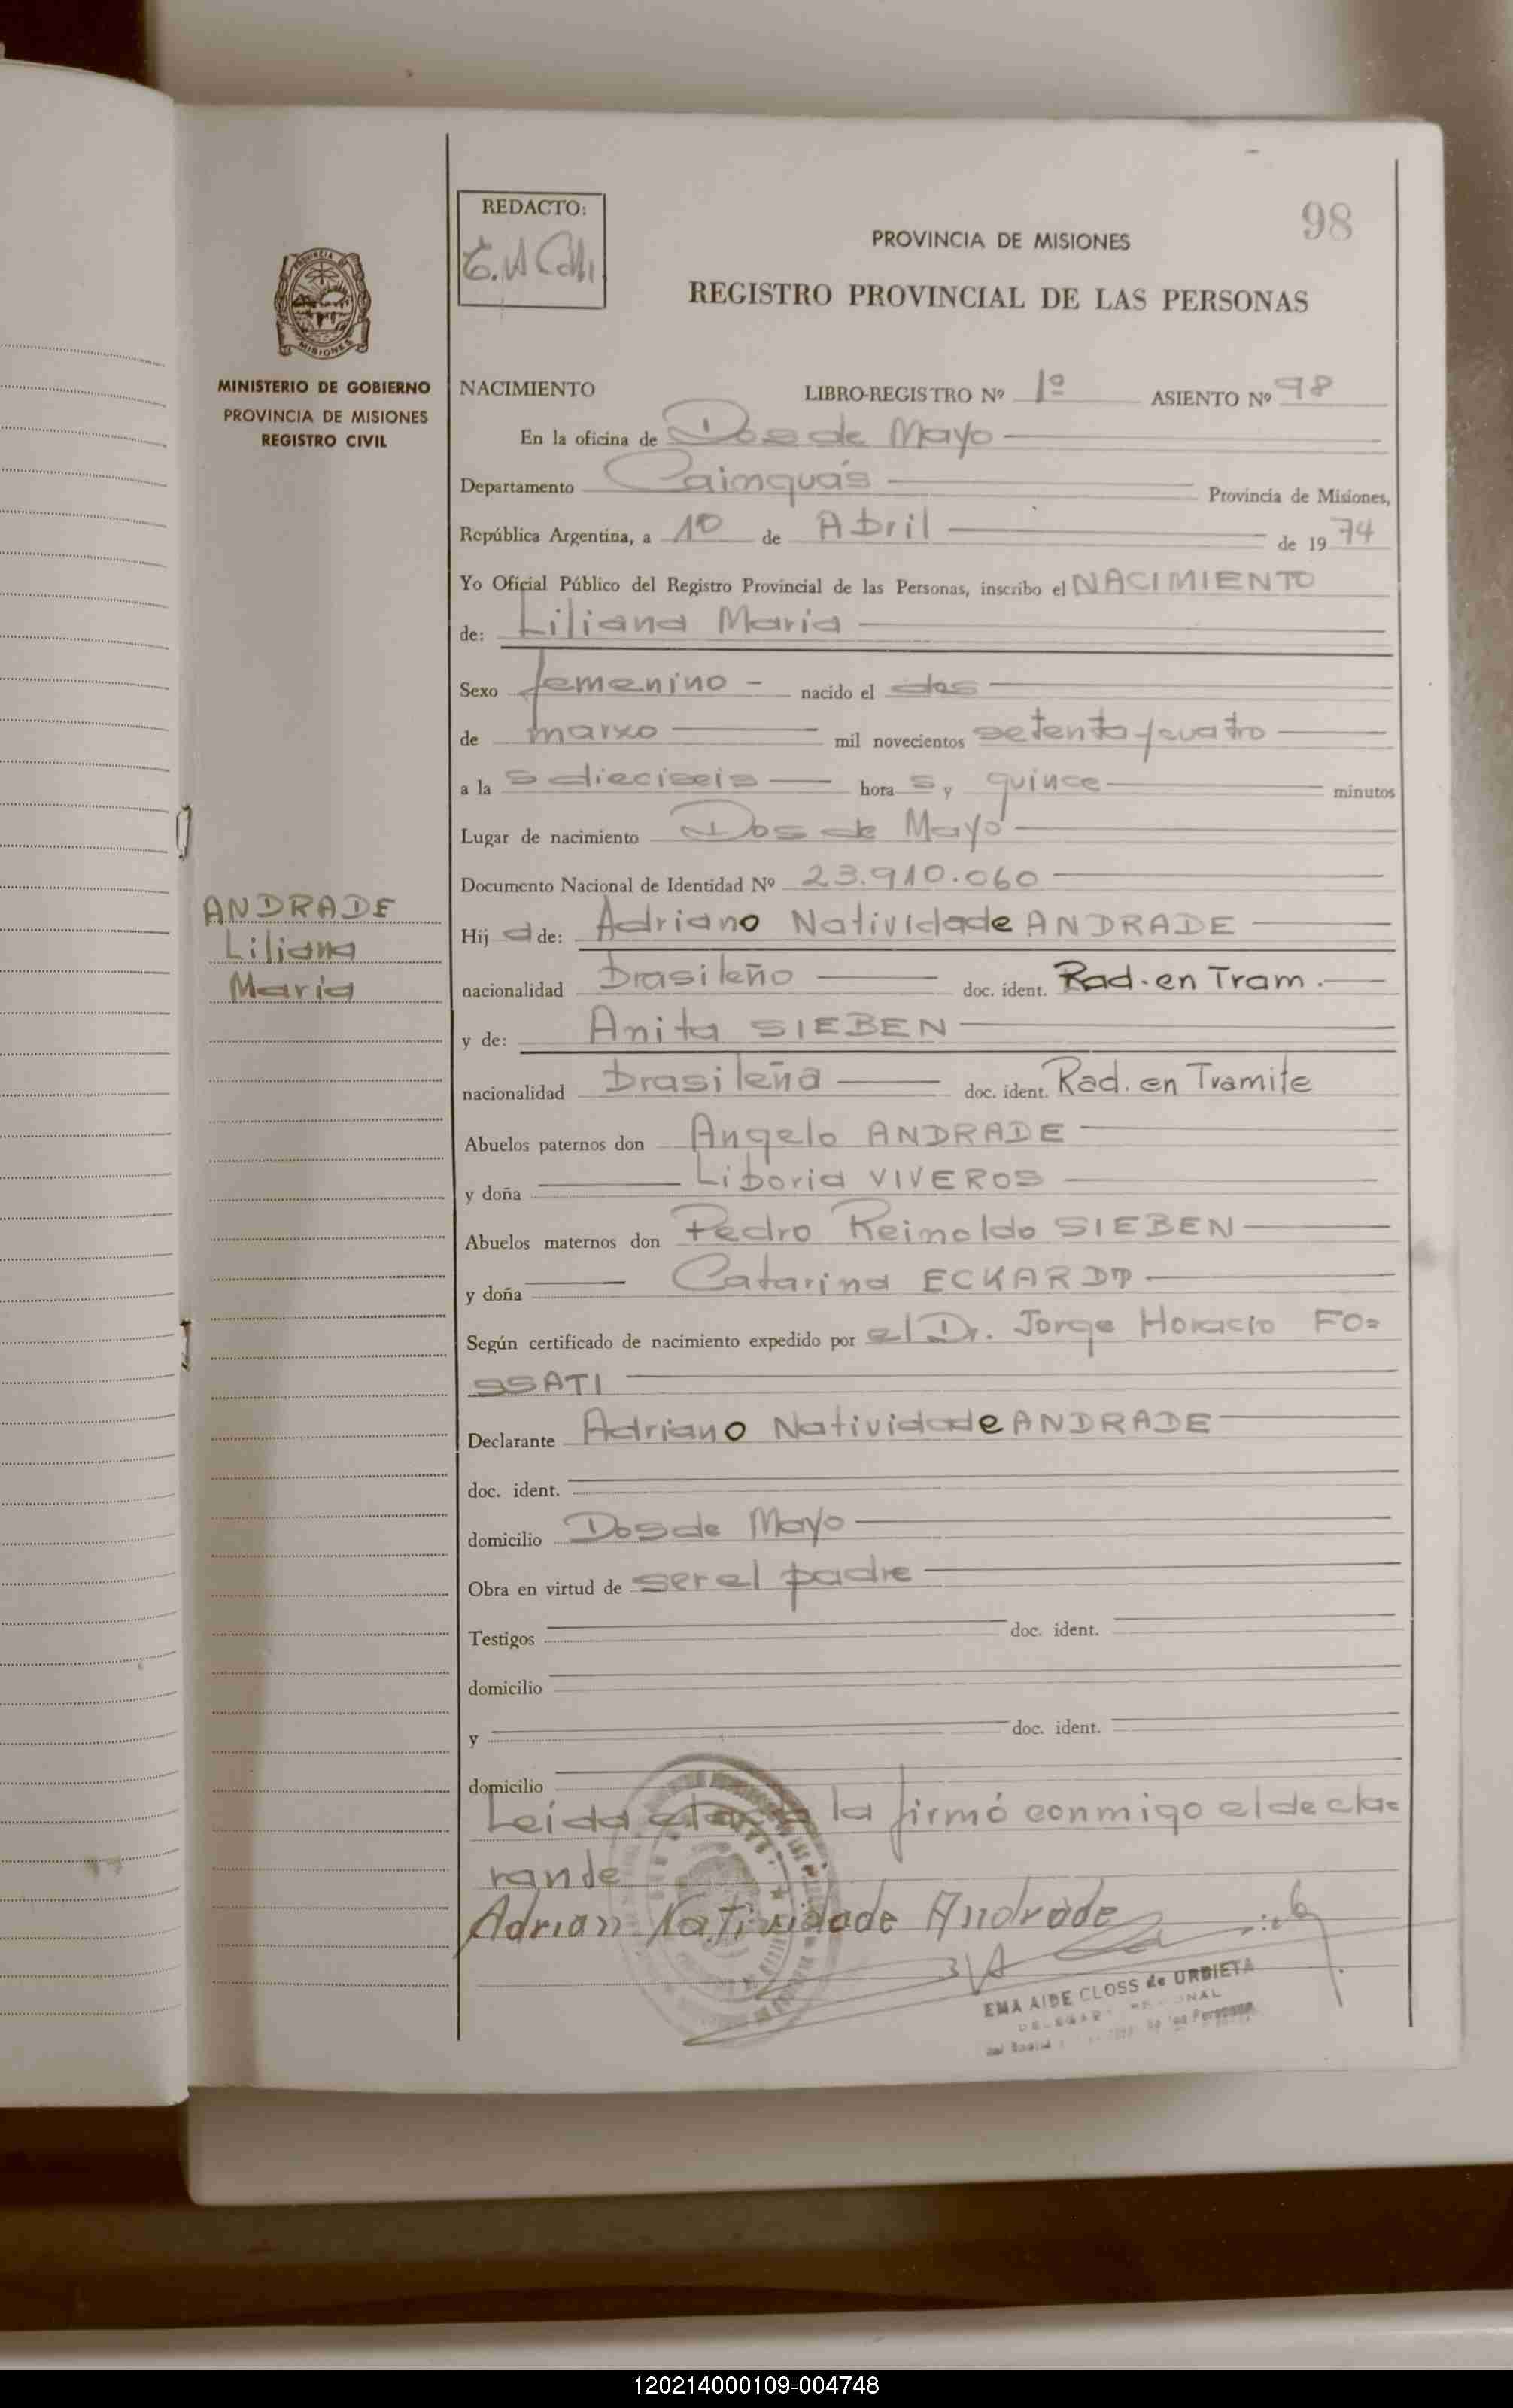 REDACTO:
98
PROVINCIA DE MISIONES
REGISTRO PROVINCIAL DE LAS PERSONAS
PROVINCIA DE
MISIONES
MINISTERIO DE GOBIERNO
PROVINCIA DE MISIONES
REGISTRO CIVIL
ANDRADE
Liliana
Maria
NACIMIENTO LIBRO-REGISTRO Nº 1º ASIENTO Nº 98
En la oficina de Dos de Mayo
Departamento Cainguás Provincia de Misiones,
República Argentina, a 10 de Abril de 1974
Yo Oficial Público del Registro Provincial de las Personas, inscribo el NACIMIENTO
de: Liliana Maria
Sexo femenino - nacido el dos
de marzo mil novecientos setenta y cuatro
a la s dieciseis hora s y quince minutos
Lugar de nacimiento Dos de Mayo
Documento Nacional de Identidad Nº 23.910.060
Hij a de: Adriano Natividade ANDRADE
nacionalidad brasileño doc. ident. Rad. en Tram.
y de: Anita SIEBEN
nacionalidad brasileña doc. ident. Rad. en Tramite
Abuelos paternos don Angelo ANDRADE
y doña Liboria VIVEROS
Abuelos maternos don Pedro Reinoldo SIEBEN
y doña Catarina ECKARDT
Según certificado de nacimiento expedido por el Dr. Jorge Horacio FO=
SSATI
Declarante Adriano Natividade ANDRADE
doc. ident.
domicilio Dos de Mayo
Obra en virtud de ser el padre
Testigos doc. ident.
domicilio
y doc. ident.
domicilio
Leída el acta la firmó conmigo el decla=
rande
Adrian Natividade Andrade
EMA AIDE CLOSS de URBIETA
120214000109-004748